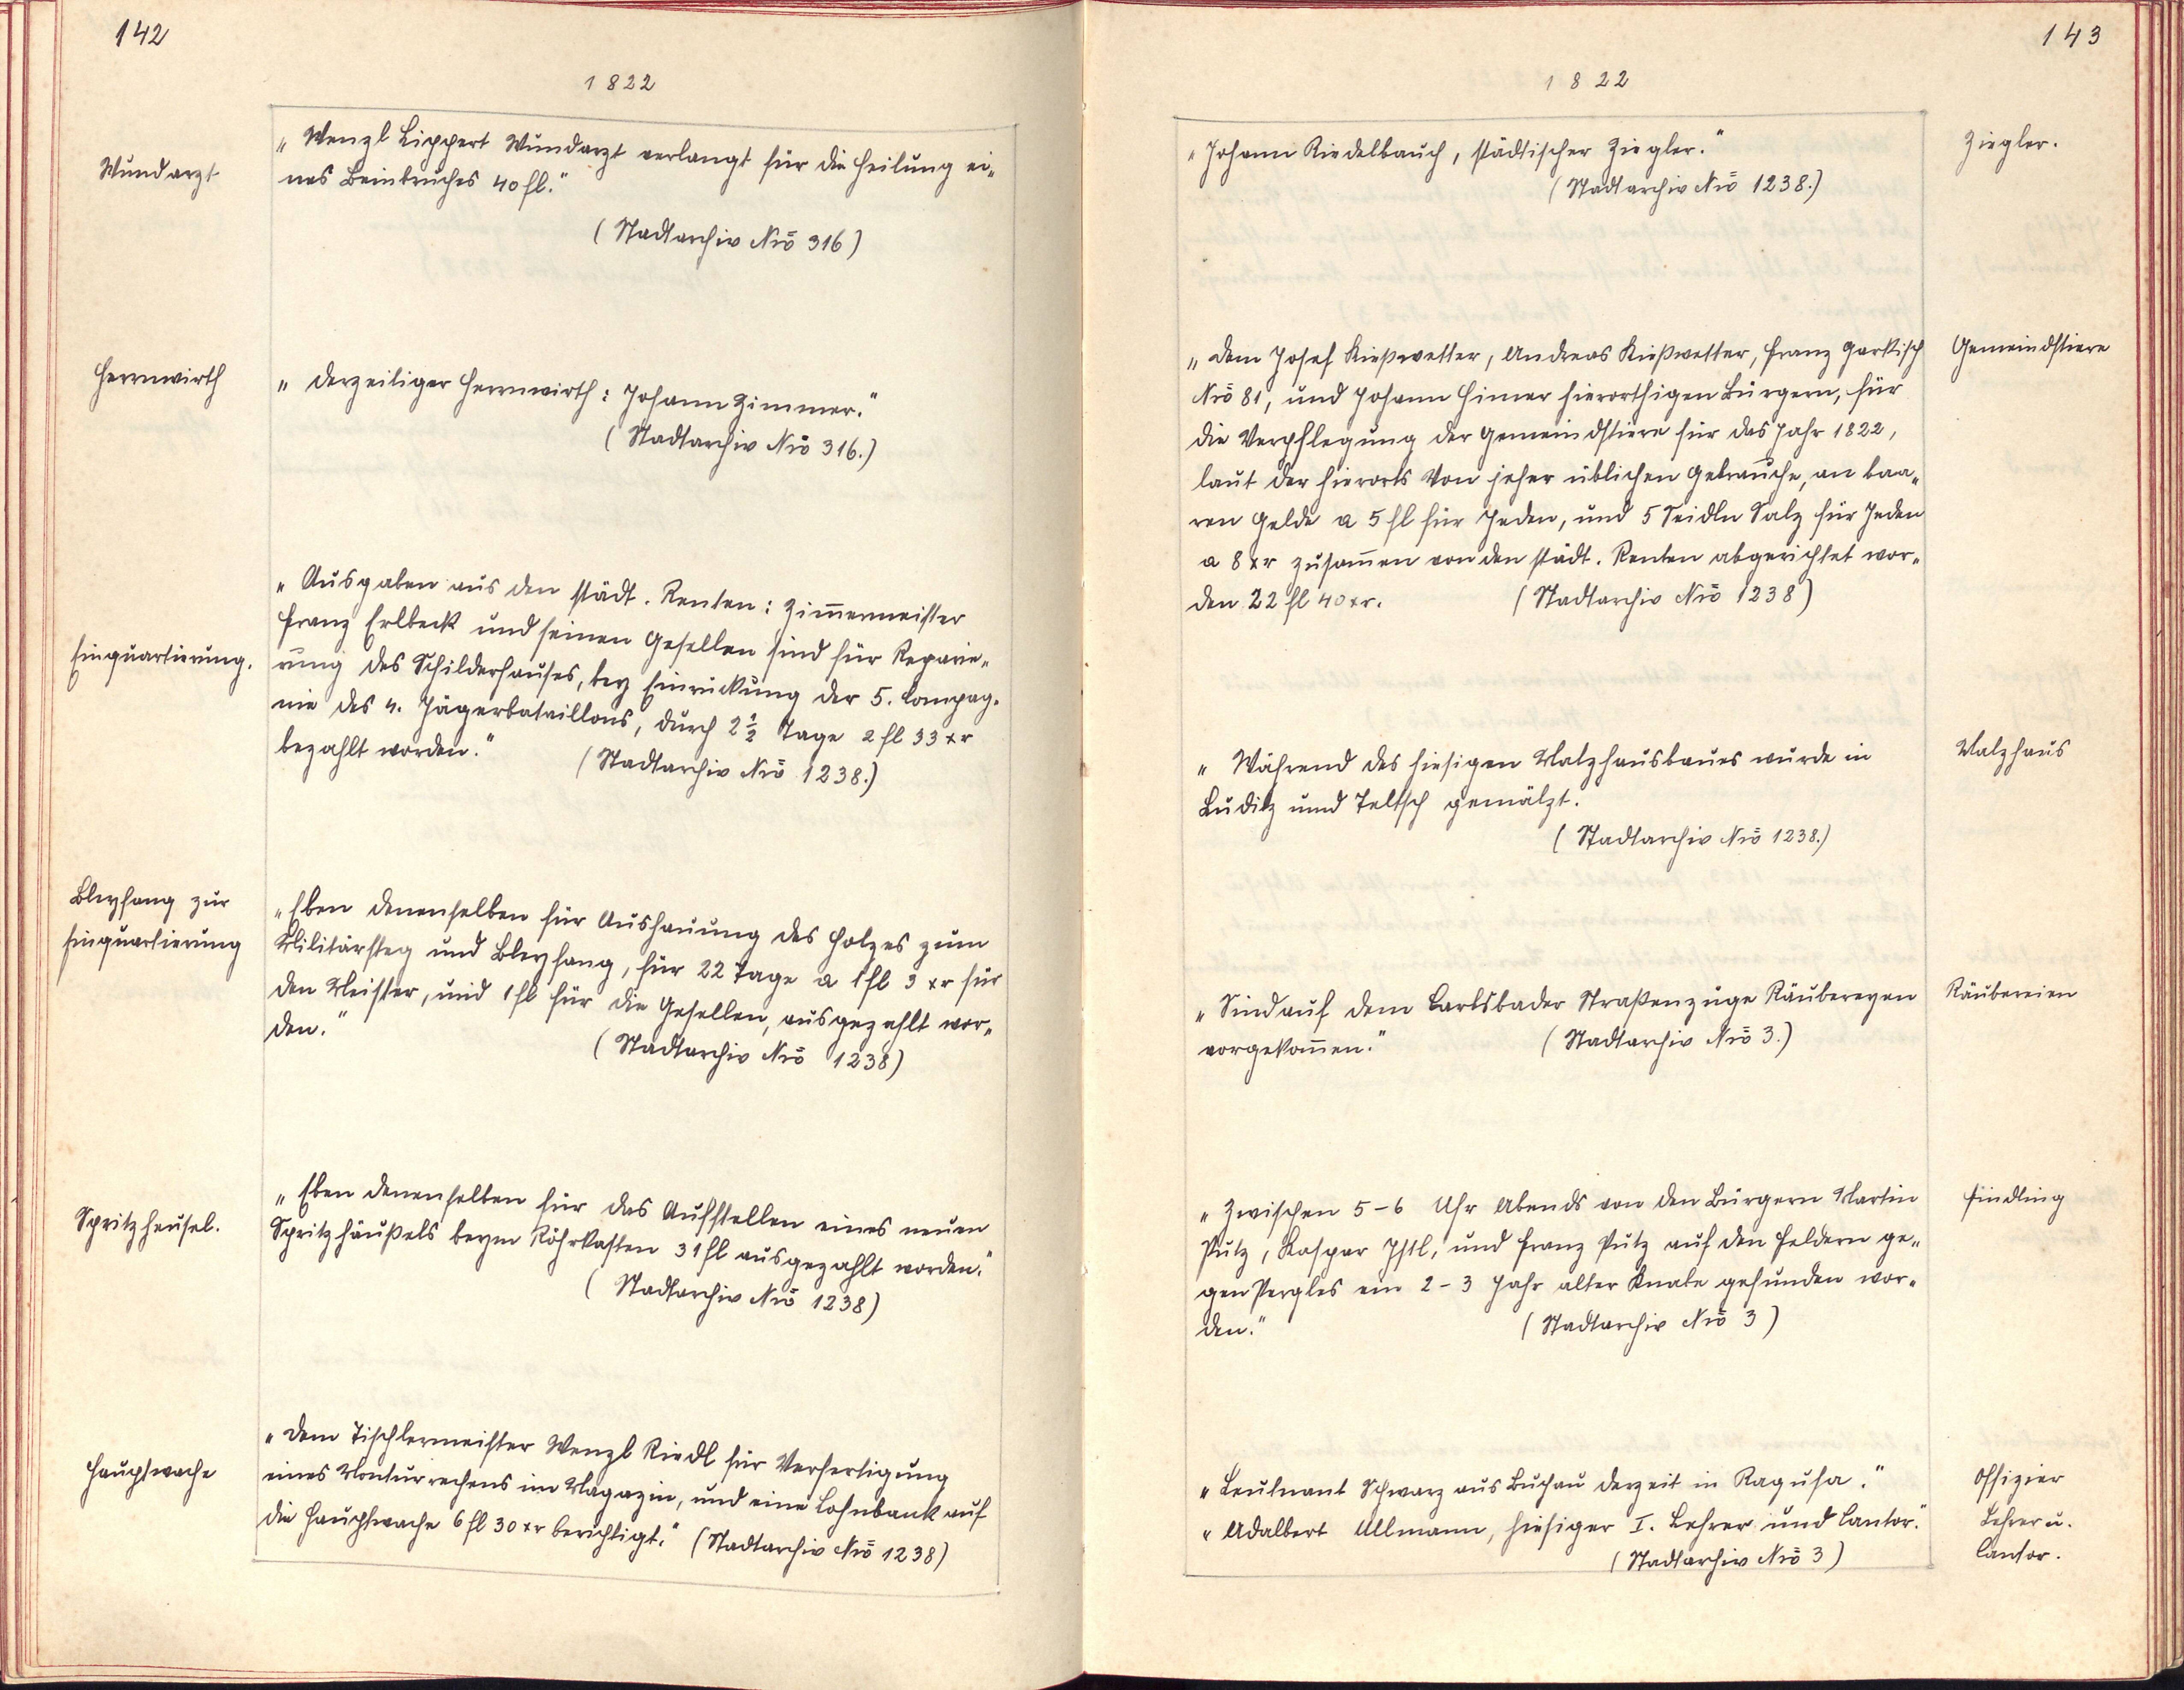 142
1822
Wundarzt
„Wenzl Lippert Wundarzt verlangt für die Heilung ei„
nes Beinbruches 40 fl."
(Stadtarchiv Nrō 316)
Herrnwirth
„Derzeitiger Herrnwirth: Johann Zimmer."
(Stadtarchiv Nrō 316.)
Einquartierung.
„Ausgaben aus den städt. Renten: Zim̄ermeister
Franz Erlbeck und seinen Gesellen sind für Reparie„
rung des Schilderhauses, bey Einrückung der 5. Compag„
nie des 4. Jägerbataillons, durch 2½ Tage 2 fl 33 xr
bezahlt worden."
(Stadtarchiv Nrō 1238.)
Bleyhang zur
Einquartierung
„Eben denenselben für Aushauung des Holzes zum
Militärsteg und Bleyhang, für 22 Tage a 1 fl 3 xr für
den Meister, und 1 fl für die Gesellen, ausgezahlt wor„
den."
(Stadtarchiv Nrō 1238)
Spritzheusel.
„Eben denenselben für das Aufstellen eines neuen
Spritzhäußels beym Röhrkasten 31 fl ausgezahlt worden."
(Stadtarchiv Nrō 1238)
Hauptwache
„Dem Tischlermeister Wenzl Riedl für Verfertigung
eines Monturrechens im Magazin, und eine Lohnbank auf
die Hauptwache 6 fl 30 xr berichtigt." (Stadtarchiv Nrō 1238)
143
1822
„Johann Riedelbauch, städtischer Ziegler."
Ziegler.
(Stadtarchiv Nrō 1238.)
„Dem Josef Kießwetter, Andreas Kießwetter, Franz Garkisch
Gemeindstiere
Nrō 81, und Johann Himer hierorthigen Bürgern, für
die Verpflegung der Gemeindstiere für das Jahr 1822,
laut der hierorts von jeher üblichen Gebrauche, an baa„
ren Gelde a 5 fl für Jeden, und 5 Seidln Salz für Jeden
a 8 xr zusam̄en von den städt. Renten abgerichtet wor„
den 22 fl 40 xr.
(Stadtarchiv Nrō 1238)
„Während des hiesigen Malzhausbaues wurde in
Malzhaus
Luditz und Teltsch gemälzt.
(Stadtarchiv Nrō 1238.)
„Sind auf dem Carlsbader Straßenzuge Räubereyen
Räubereien
vorgekom̄en."
(Stadtarchiv Nrō 3.)
„Zwischen 5-6 Uhr Abends von den Bürgern Martin
Findling
Putz, Kaspar Istl, und Franz Putz auf den Feldern ge„
gen Pergles ein 2-3 Jahr alter Knabe gefunden wor„
den."
(Stadtarchiv Nrō 3)
„Leutnant Schwarz aus Buchau derzeit in Ragusa."
Offizier
„Adalbert Ullmann, hiesiger I. Lehrer und Cantor."
Lehrer u.
Cantor.
(Stadtarchiv Nrō 3)